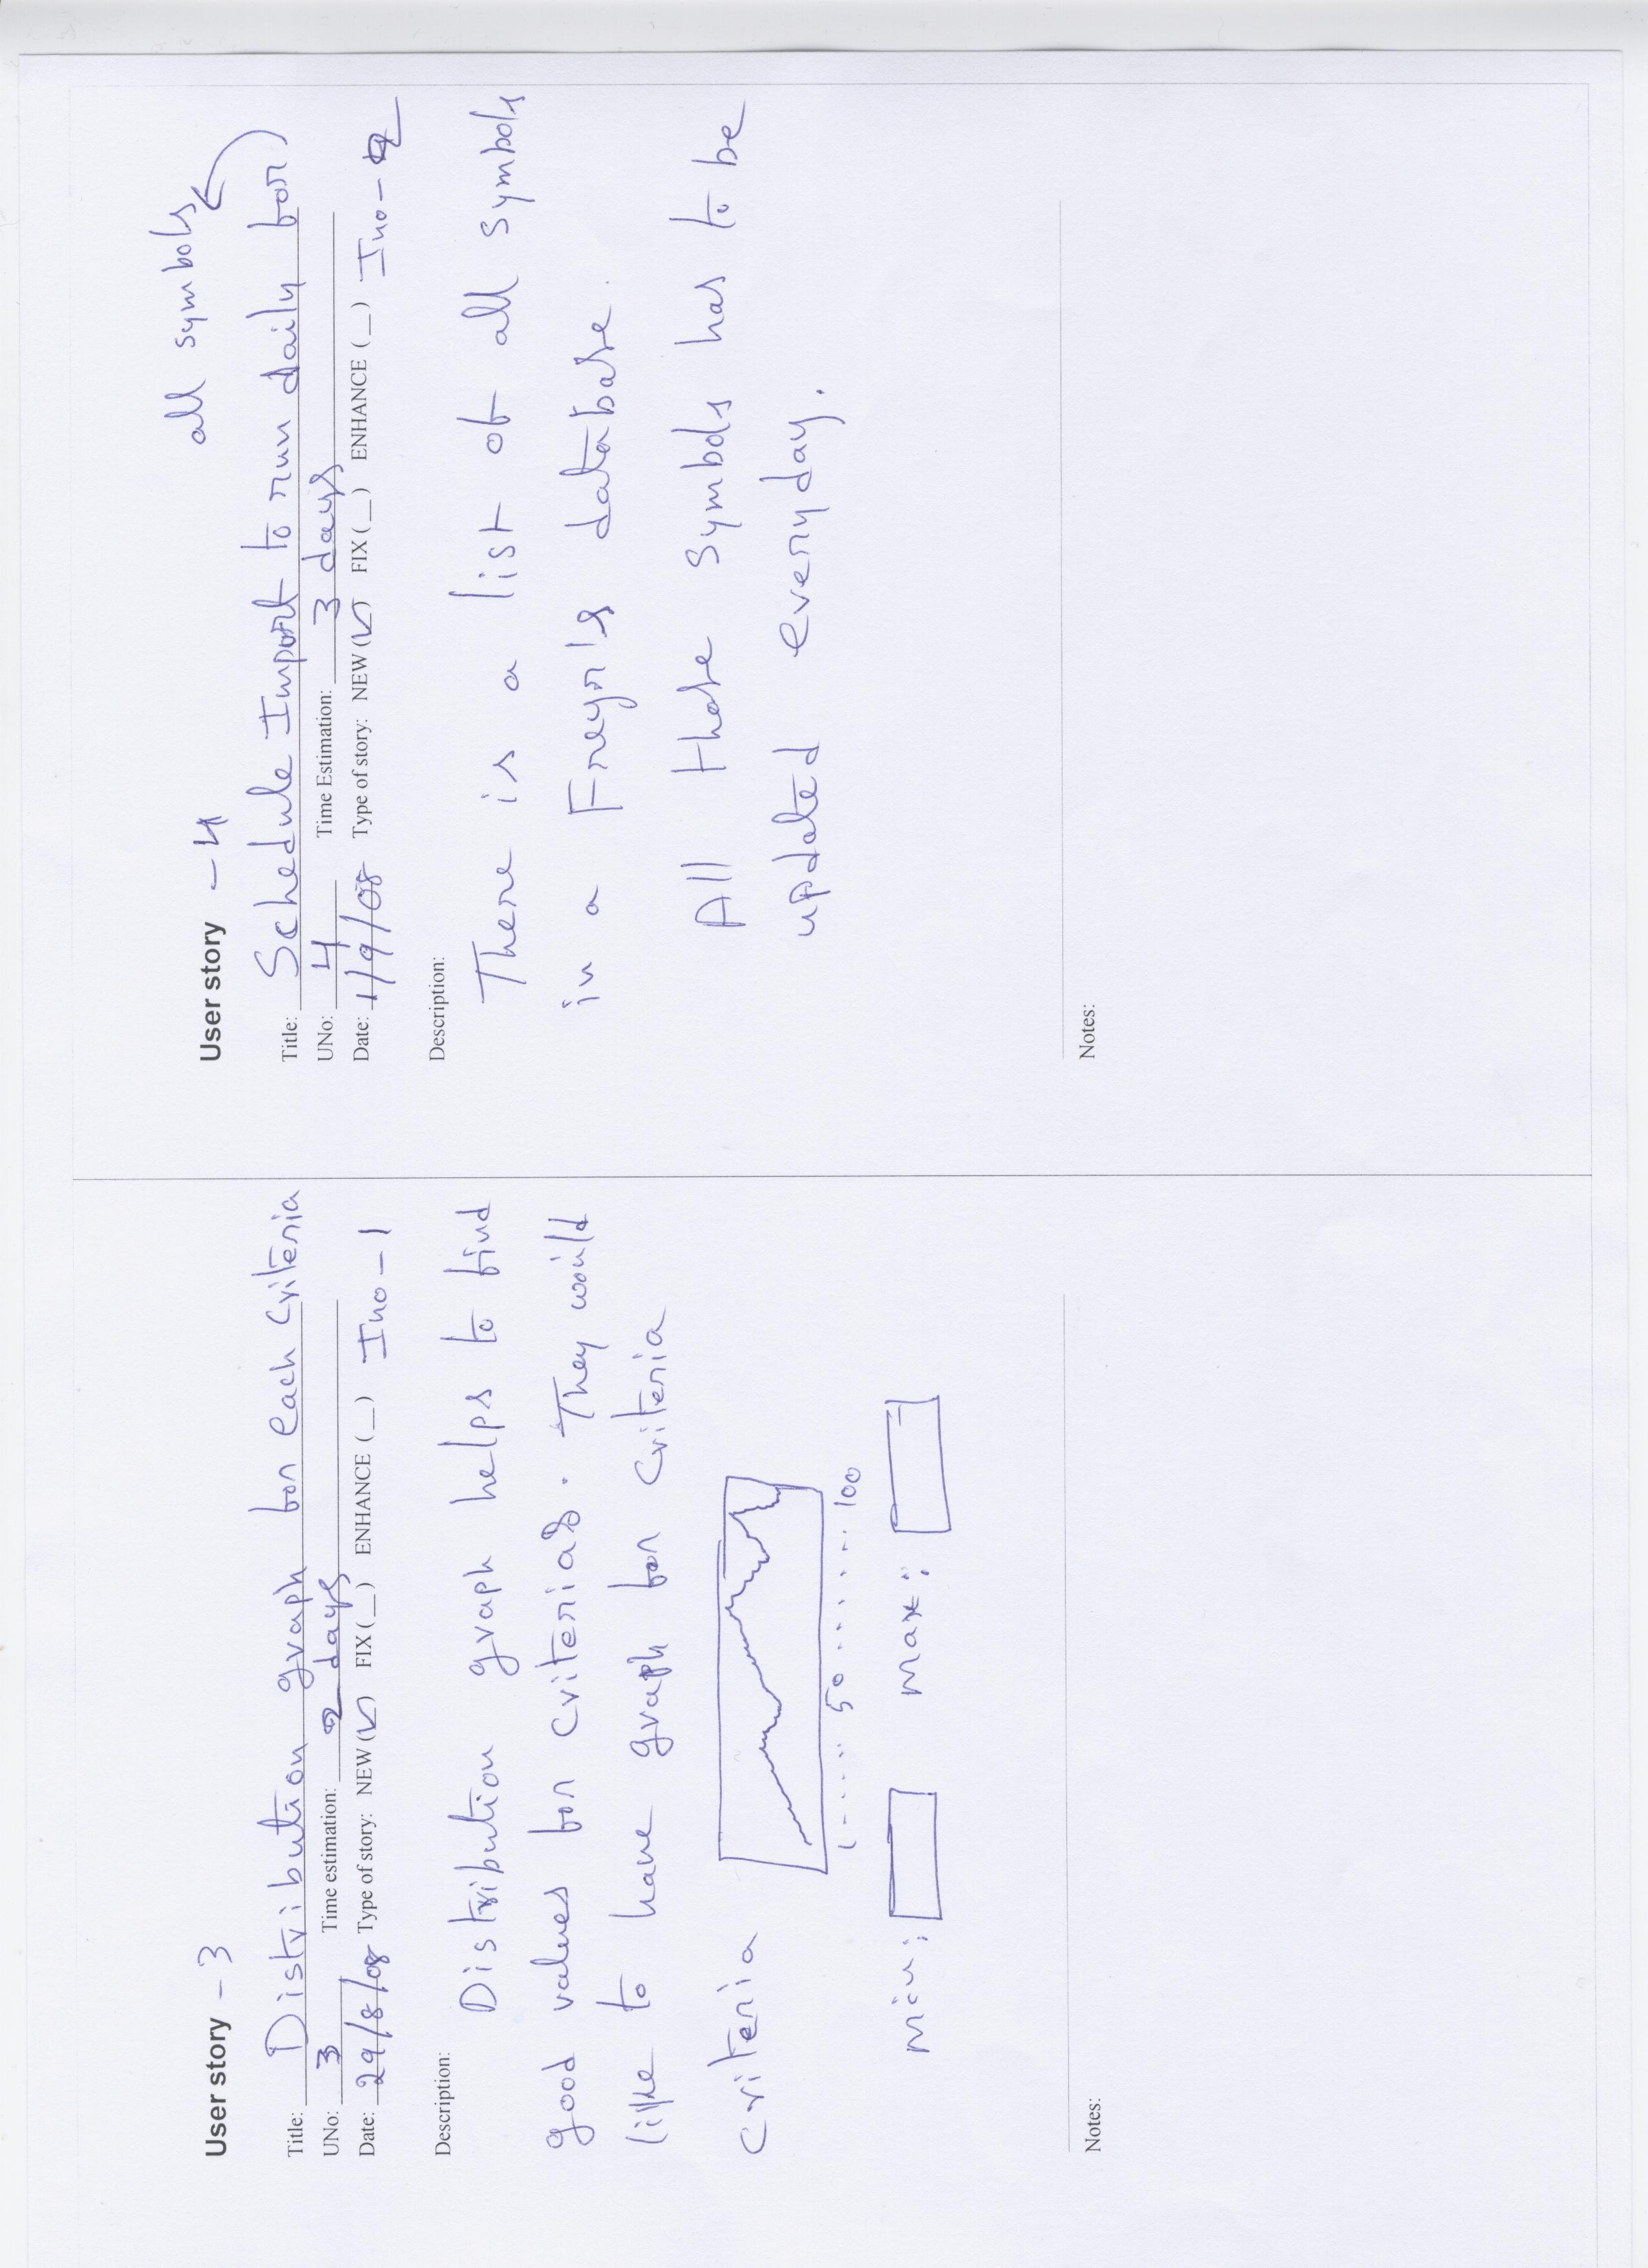 User story - 3
Title: Distribution graph for each criteria
UNo: 3 Time estimation: 2 days
Date: 29/8/08 Type of story: NEW (✓) FIX (_) ENHANCE (_) Ino-1
Description:
Distribution graph helps to find
good values for criterias. They would
like to have graph for criteria
criteria
1 . . . . 50 . . . . . . . 100
min: max:
Notes:
User story - 4
all symbols
Title: Schedule Import to run daily for)
UNo: 4 Time Estimation: 3 days
Date: 1/9/08 Type of story: NEW (✓) FIX (_) ENHANCE (_) Ino-2
Description:
There is a list of all symbols
in a Freyr's database.
All those symbols has to be
updated everyday.
Notes: